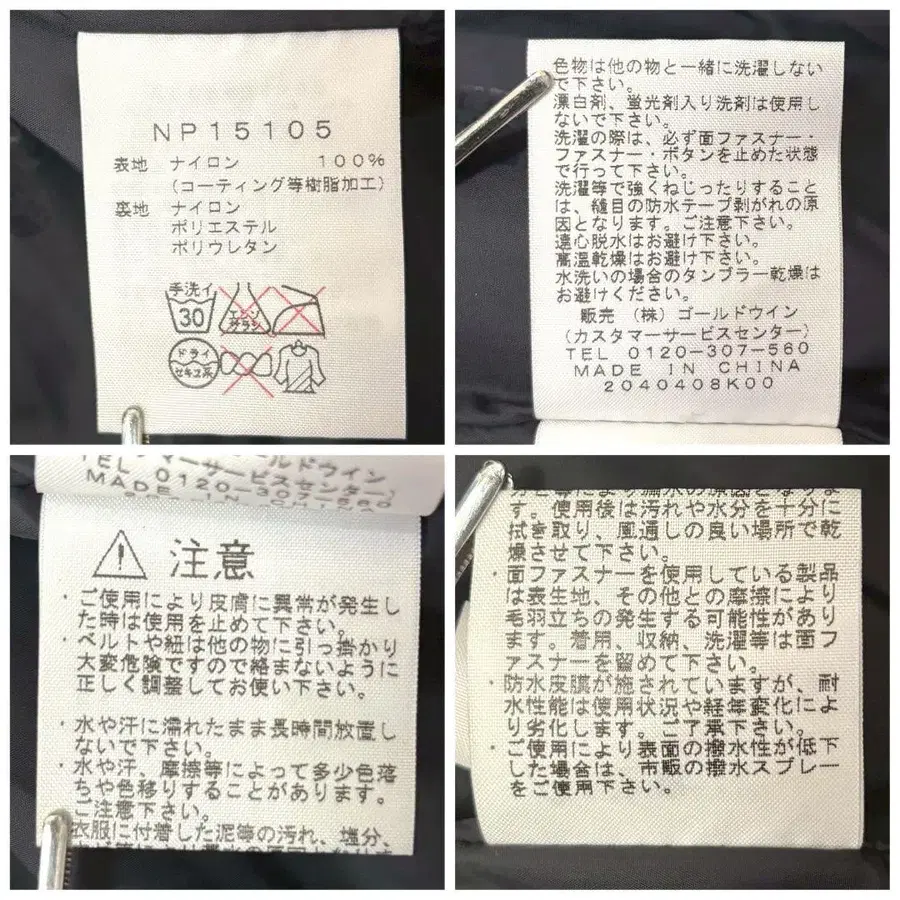 NP15105
表地 ナイロン 100%
(コーティング等樹脂加工)
裏地 ナイロン
ポリエステル
ポリウレタン
手洗イ
30
エンソ
サラシ
ドライ
セキユ系
色物は他の物と一緒に洗濯しない
で下さい。
漂白剤、蛍光剤入り洗剤は使用し
ないで下さい。
洗濯の際は、必ず面ファスナー・
ファスナー・ボタンを止めた状態
で行って下さい。
洗濯等で強くねじったりすること
は、縫目の防水テープ剥がれの原
因となります。ご注意下さい。
遠心脱水はお避け下さい。
高温乾燥はお避け下さい。
水洗いの場合のタンブラー乾燥は
お避けください。
販売 (株)ゴールドウイン
(カスタマーサービスセンター)
TEL 0120-307-560
MADE IN CHINA
2040408K00
ールドウイン
タマーサービスセンター)
TEL 0120-307-560
MADE IN
注意
・ご使用により皮膚に異常が発生し
た時は使用を止めて下さい。
・ベルトや紐は他の物に引っ掛かり
大変危険ですので絡まないように
正しく調整してお使い下さい。
・水や汗に濡れたまま長時間放置し
ないで下さい。
・水や汗、摩擦等によって多少色落
ちや色移りすることがあります。
ご注意下さい。
衣服に付着した泥等の汚れ、塩分、
す。使用後は汚れや水分を十分に
拭き取り、風通しの良い場所で乾
燥させて下さい。
・面ファスナーを使用している製品
は表生地、その他との摩擦により
毛羽立ちの発生する可能性があり
ます。着用、収納、洗濯等は面フ
ァスナーを留めて下さい。
・防水皮膜が施されていますが、耐
水性能は使用状況や経年変化によ
り劣化します。ご了承下さい。
・ご使用により表面の撥水性が低下
した場合は、市販の撥水スプレー
をご使用下さい。